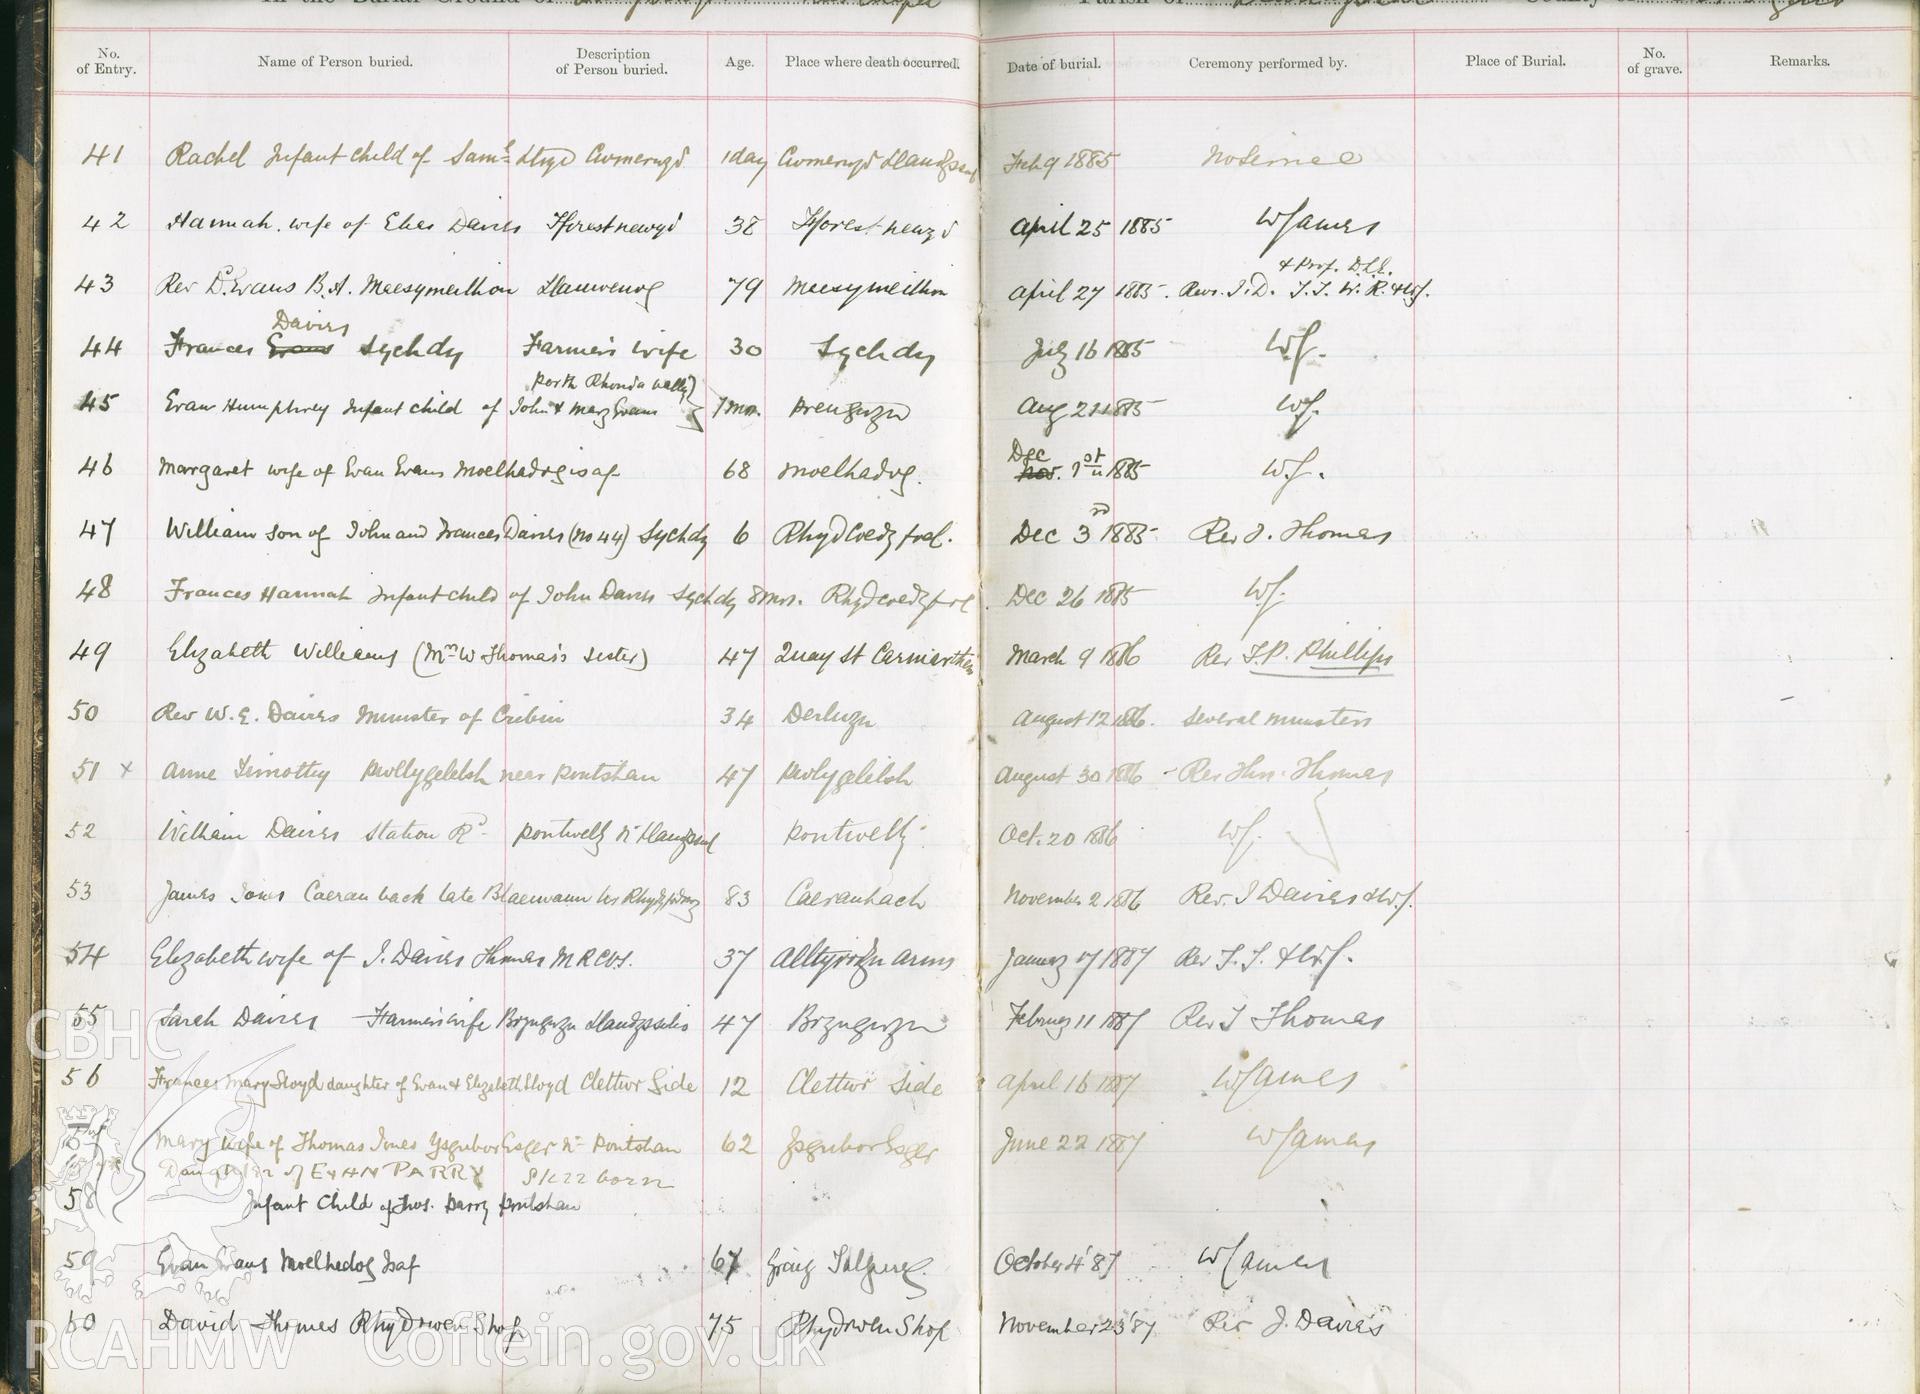 In the Burial Ground of
Parish of
No. of Entry. Name of Person buried. Description of Person buried. Age. Place where death occurred. Date of burial. Ceremony performed by. Place of Burial. No. of grave. Remarks.
41 Rachel Infant child of Saml Lloyd 1 day Feb 9 1885 No Service
42 Hannah wife of Elias Davies Fforestnewyd 38 Fforest newyd April 25 1885 W James
+ Prof. D.L.E.
43 Rev D. Evans B.A. Maesymeillion Llanwenog 79 Maesymeillion April 27 1885. Revs. J.D. T.T. W.R. + WJ.
Davies
44 Frances Evans Sychdy Farmer's wife 30 Sychdy July 16 1885 WJ.
Porth Rhonda Valley
45 Evan Humphrey Infant child of John & Mary Evans 7 mos. Prengwyn Aug 21 1885 WJ.
Dec
46 Margaret wife of Evan Evans Moelhadog isaf 68 Moelhadog. Nov. 1st 1885 W.J.
47 William son of John and Frances Davies (No 44) Sychdy 6 Rhydcoedyfoel. Dec 3rd 1885 Rev J. Thomas
48 Frances Hannah Infant child of John Davies Sychdy 8 mos. Rhydcoedyfoel Dec 26 1885 WJ.
49 Elizabeth Williams (Mrs W Thomas's sister) 47 Quay St Carmarthen March 9 1886 Rev T.P. Phillips
50 Rev W.E. Davies Minister of Cribin 34 August 12 1886. Several ministers
51 x Anne Timothy near Pontshan 47 August 30 1886 - Rev Thos. Thomas
52 William Davies Station Rd Pontwelly Nr Llandyssul Pontwelly Oct. 20 1886 WJ.
53 James Jones Caeranbach late 83 Caeranbach November 2 1886 Rev. J Davies & W.J.
54 Elizabeth wife of J. Davies Thomas MRCVS. 37 Alltyrodyn Arms January 17 1887 Rev T.T. & WJ.
55 Sarah Davies Farmer's wife Bryngwyn Llandyssilio 47 Bryngwyn February 11 1887 Rev T Thomas
56 Frances Mary Lloyd daughter of Evan & Elizabeth Lloyd Clettwr Side 12 Clettwr Side April 16 1887 W James
57 Mary wife of Thomas Jones Ysgubor Esger Nr Pontshan 62 Ysgubor Esger June 22 1887 W James
Daughter of EVAN PARRY Still born
58 Infant Child of Thos. Parry Pontshan
59 Evan Evans Moelhedog Isaf 67 October 4 '87 W James
60 David Thomas Rhydowen Shop 75 Rhydowen Shop November 23 '87 Rev J. Davies
CBHC
RCAHMW Coflein.gov.uk